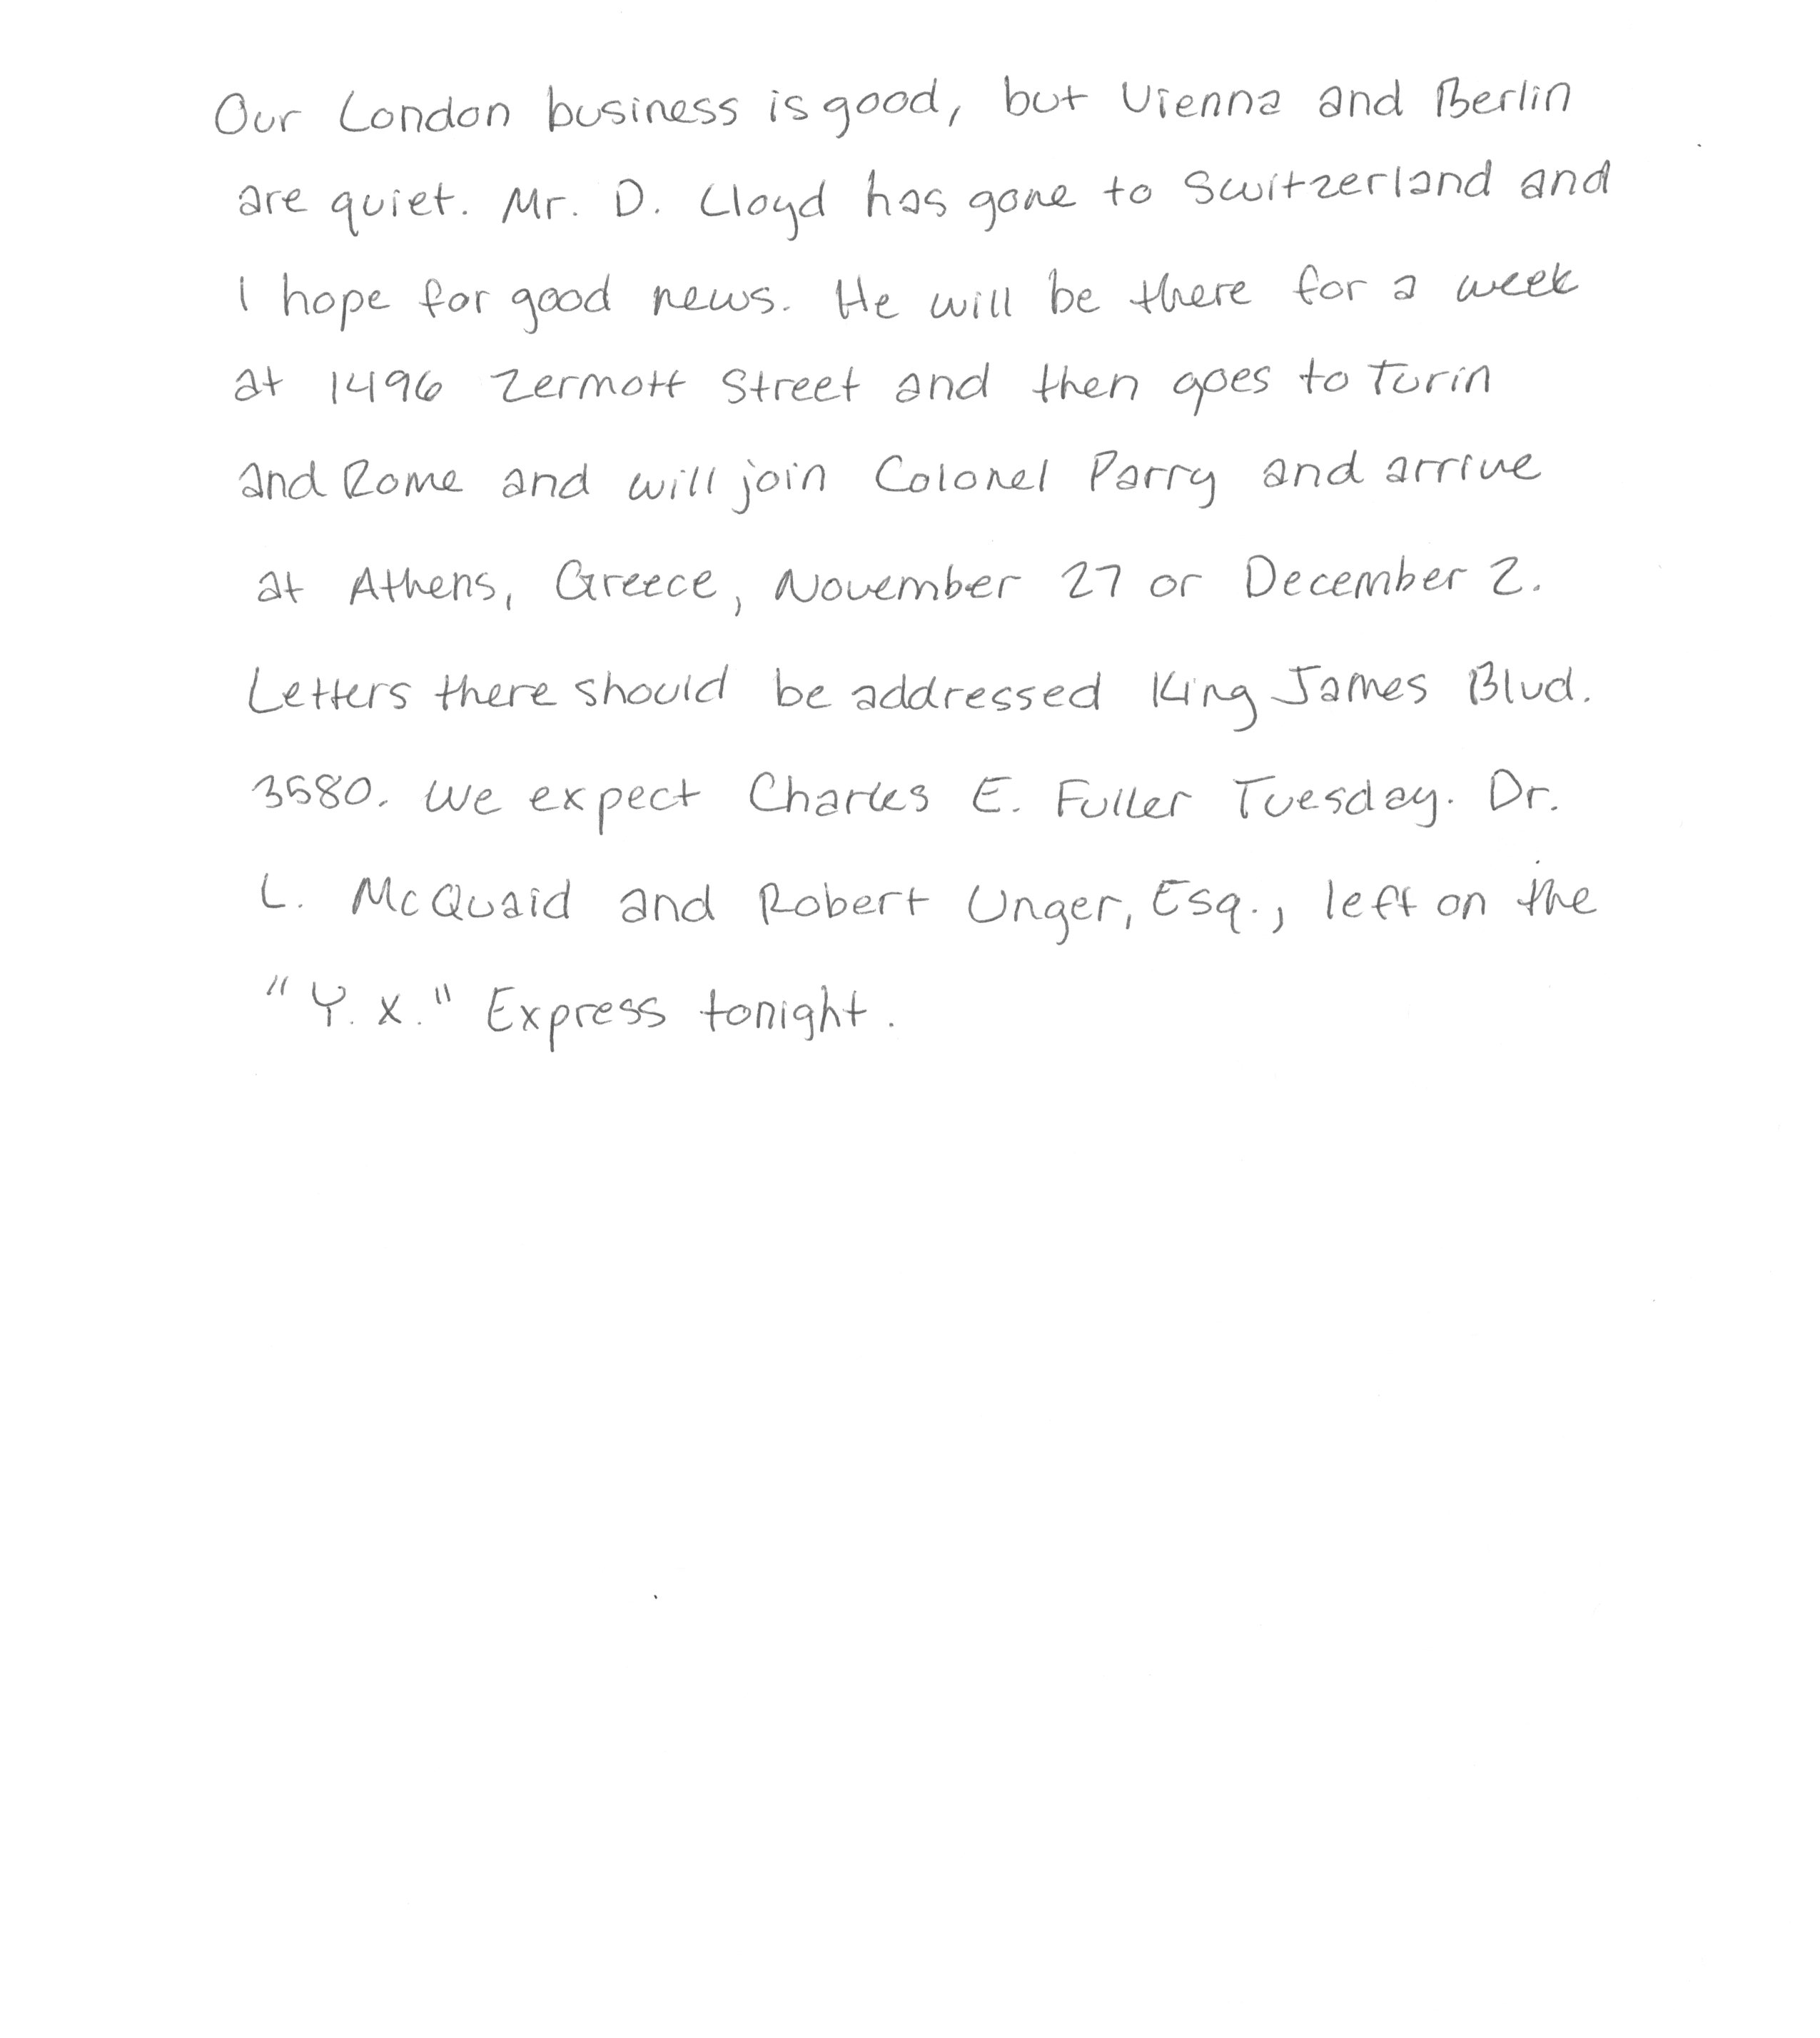 Our London business is good, but Vienna and Berlin
are quiet. Mr. D. Lloyd has gone to Switzerland and
I hope for good news. He will be there for a week
at 1496 Zermott Street and then goes to Turin
and Rome and will join Colonel Parry and arrive
at Athens, Greece, November 27 or December 2.
Letters there should be addressed King James Blvd.
3580. We expect Charles E. Fuller Tuesday. Dr.
L. McQuaid and Robert Unger, Esq., left on the
"Y.X." Express tonight.